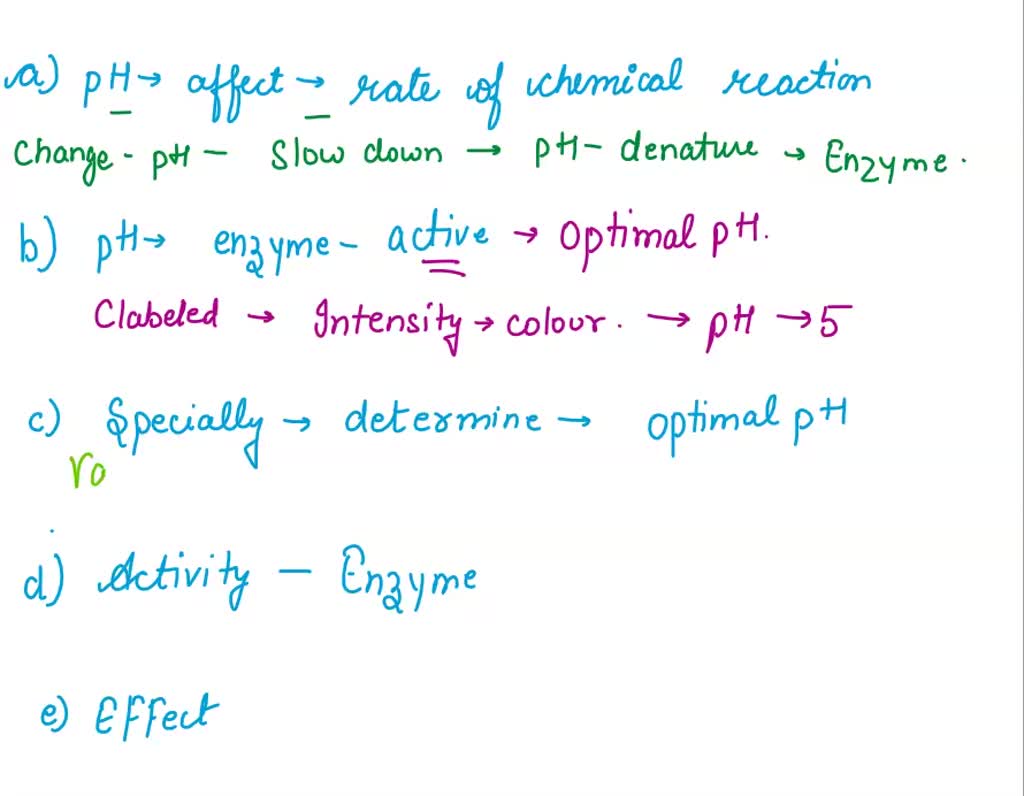 a) pH → affect → rate of chemical reaction
Change - pH - Slow down → pH - denature → Enzyme.
b) pH → enzyme - active → optimal pH.
Clabeled → Intensity → colour. → pH → 5
c) Specially → determine → optimal pH
ro
d) Activity - Enzyme
e) Effect